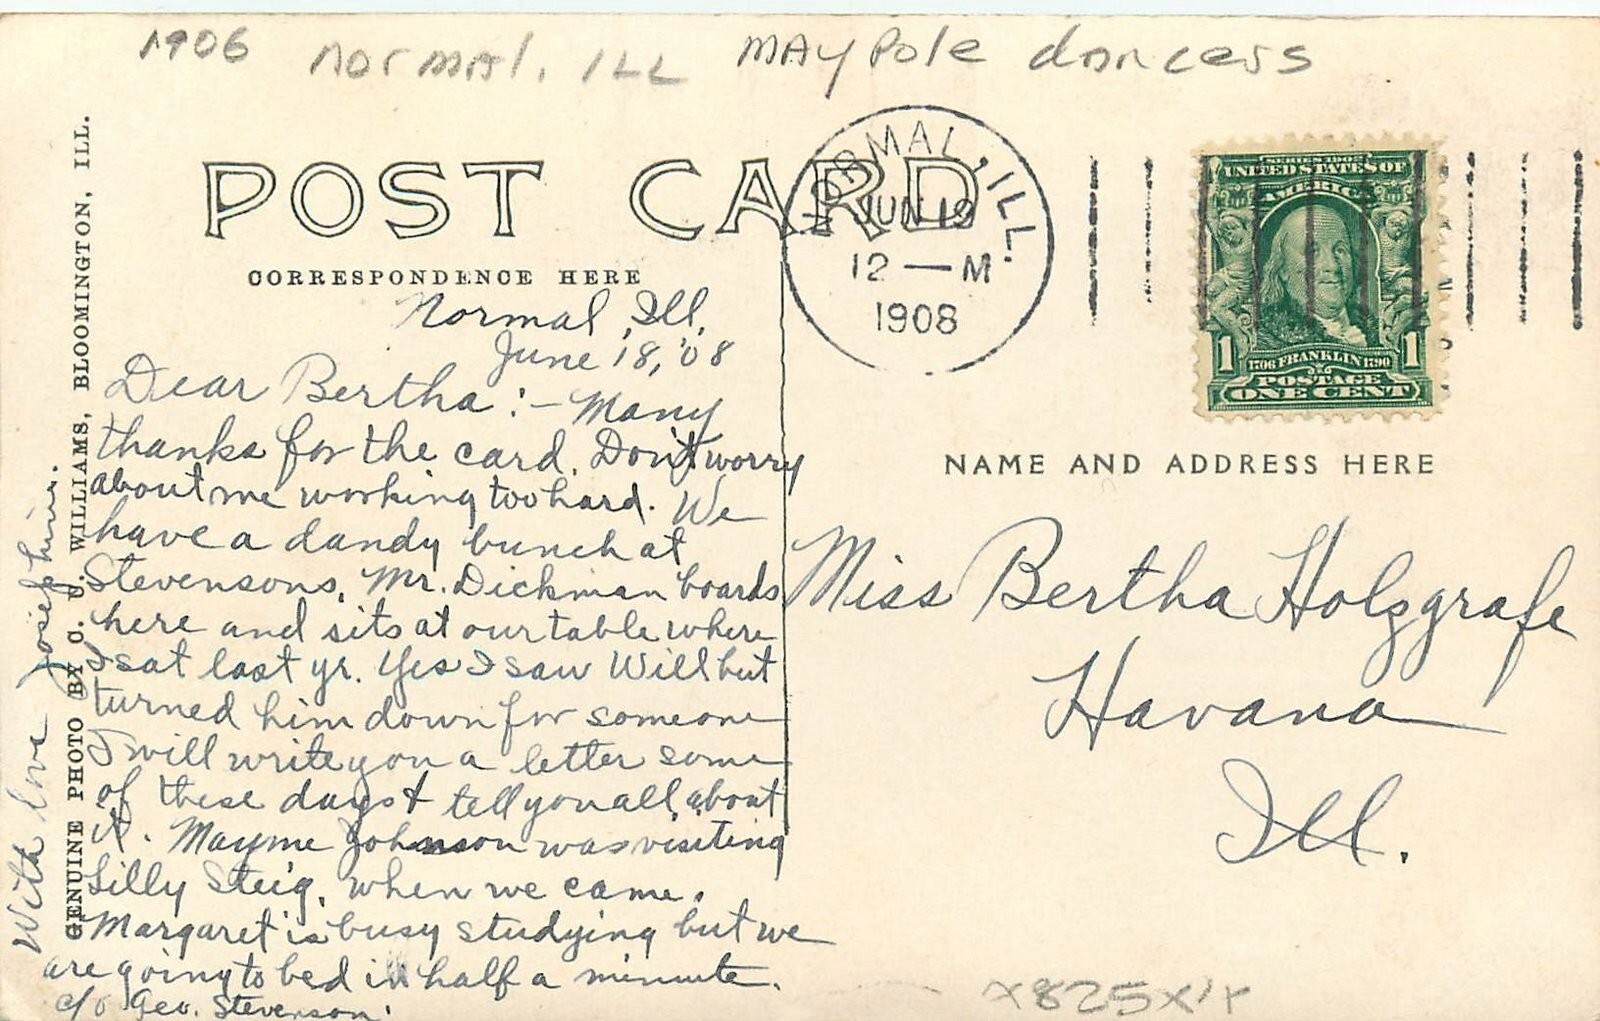 1906 Normal, Ill Maypole dancers
POST CARD
CORRESPONDENCE HERE
GENUINE PHOTO BY C. U. WILLIAMS, BLOOMINGTON, ILL.
NORMAL, ILL.
JUN 19
12 — M
1908
SERIES 1902
UNITED STATES OF
AMERICA
1 1706 FRANKLIN 1790 1
POSTAGE
ONE CENT
Normal, Ill,
June 18, '08
Dear Bertha:- Many
thanks for the card. Don't worry
about me working too hard. We
have a dandy bunch at
Stevensons. Mr. Dickman boards
here and sits at our table where
I sat last yr. Yes I saw Will but
turned him down for someone
I will write you a letter some
of these days & tell you all about
it. Mayme Johnson was visiting
Lilly Steig. when we came.
Margaret is busy studying but we
are going to bed in half a minute.
c/o Geo. Stevenson.
With love Josephine.
NAME AND ADDRESS HERE
Miss Bertha Holzgrafe
Havana
Ill.